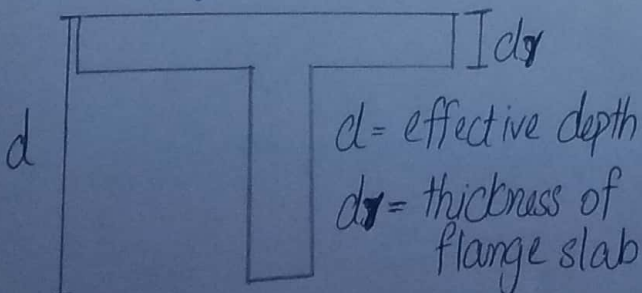 dγ
d
d = effective depth
dγ = thickness of
flange slab